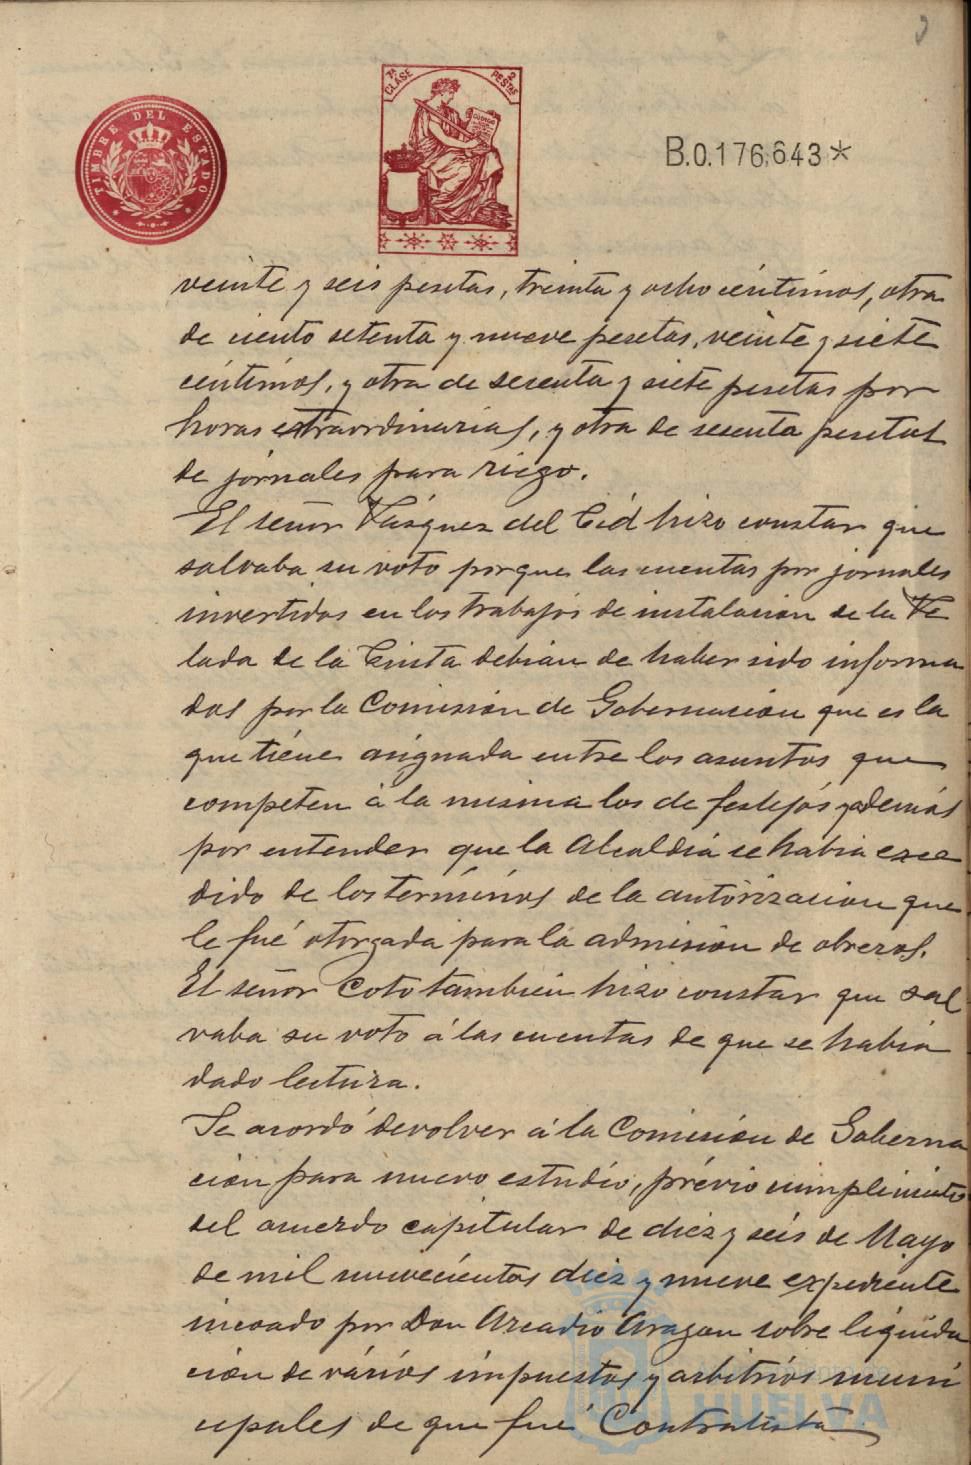 TIMBRE DEL ESTADO
7ª CLASE
2 PESTAS
CODIGO
B.0.176,643*
veinte y seis pesetas, treinta y ocho céntimos, otra
de ciento setenta y nueve pesetas, veinte y siete
céntimos, y otra de sesenta y siete pesetas por
horas extraordinarias, y otra de sesenta pesetas
de jórnales para riego.
El señor Vásquez del Cid hizo constar que
salvaba su voto porque las cuentas por jornales
invertidos en los trabajos de instalación de la Ve
lada de la Cinta debian de haber sido informa
das por la Comisión de Gobernación que es la
que tiene asignada entre los asuntos que
competen á la misma los de festejos y además
por entender que la Alcaldia se habia exce
dido de los términos de la autorización que
le fué otorgada para la admisión de obreros.
El señor Coto tambien hizo constar que sal
vaba su voto á las cuentas de que se habia
dado lectura.
Se acordó devolver á la Comisión de Goberna
ción para nuevo estudio, prévio cumplimiento
del acuerdo capitular de diez y seis de Mayo
de mil nuvecientos diez y nueve expediente
incoado por Don Arcadio Aragon sobre liquida
ción de vários impuestos y arbitrios muni
cipales de que fué Contratista
HUELVA